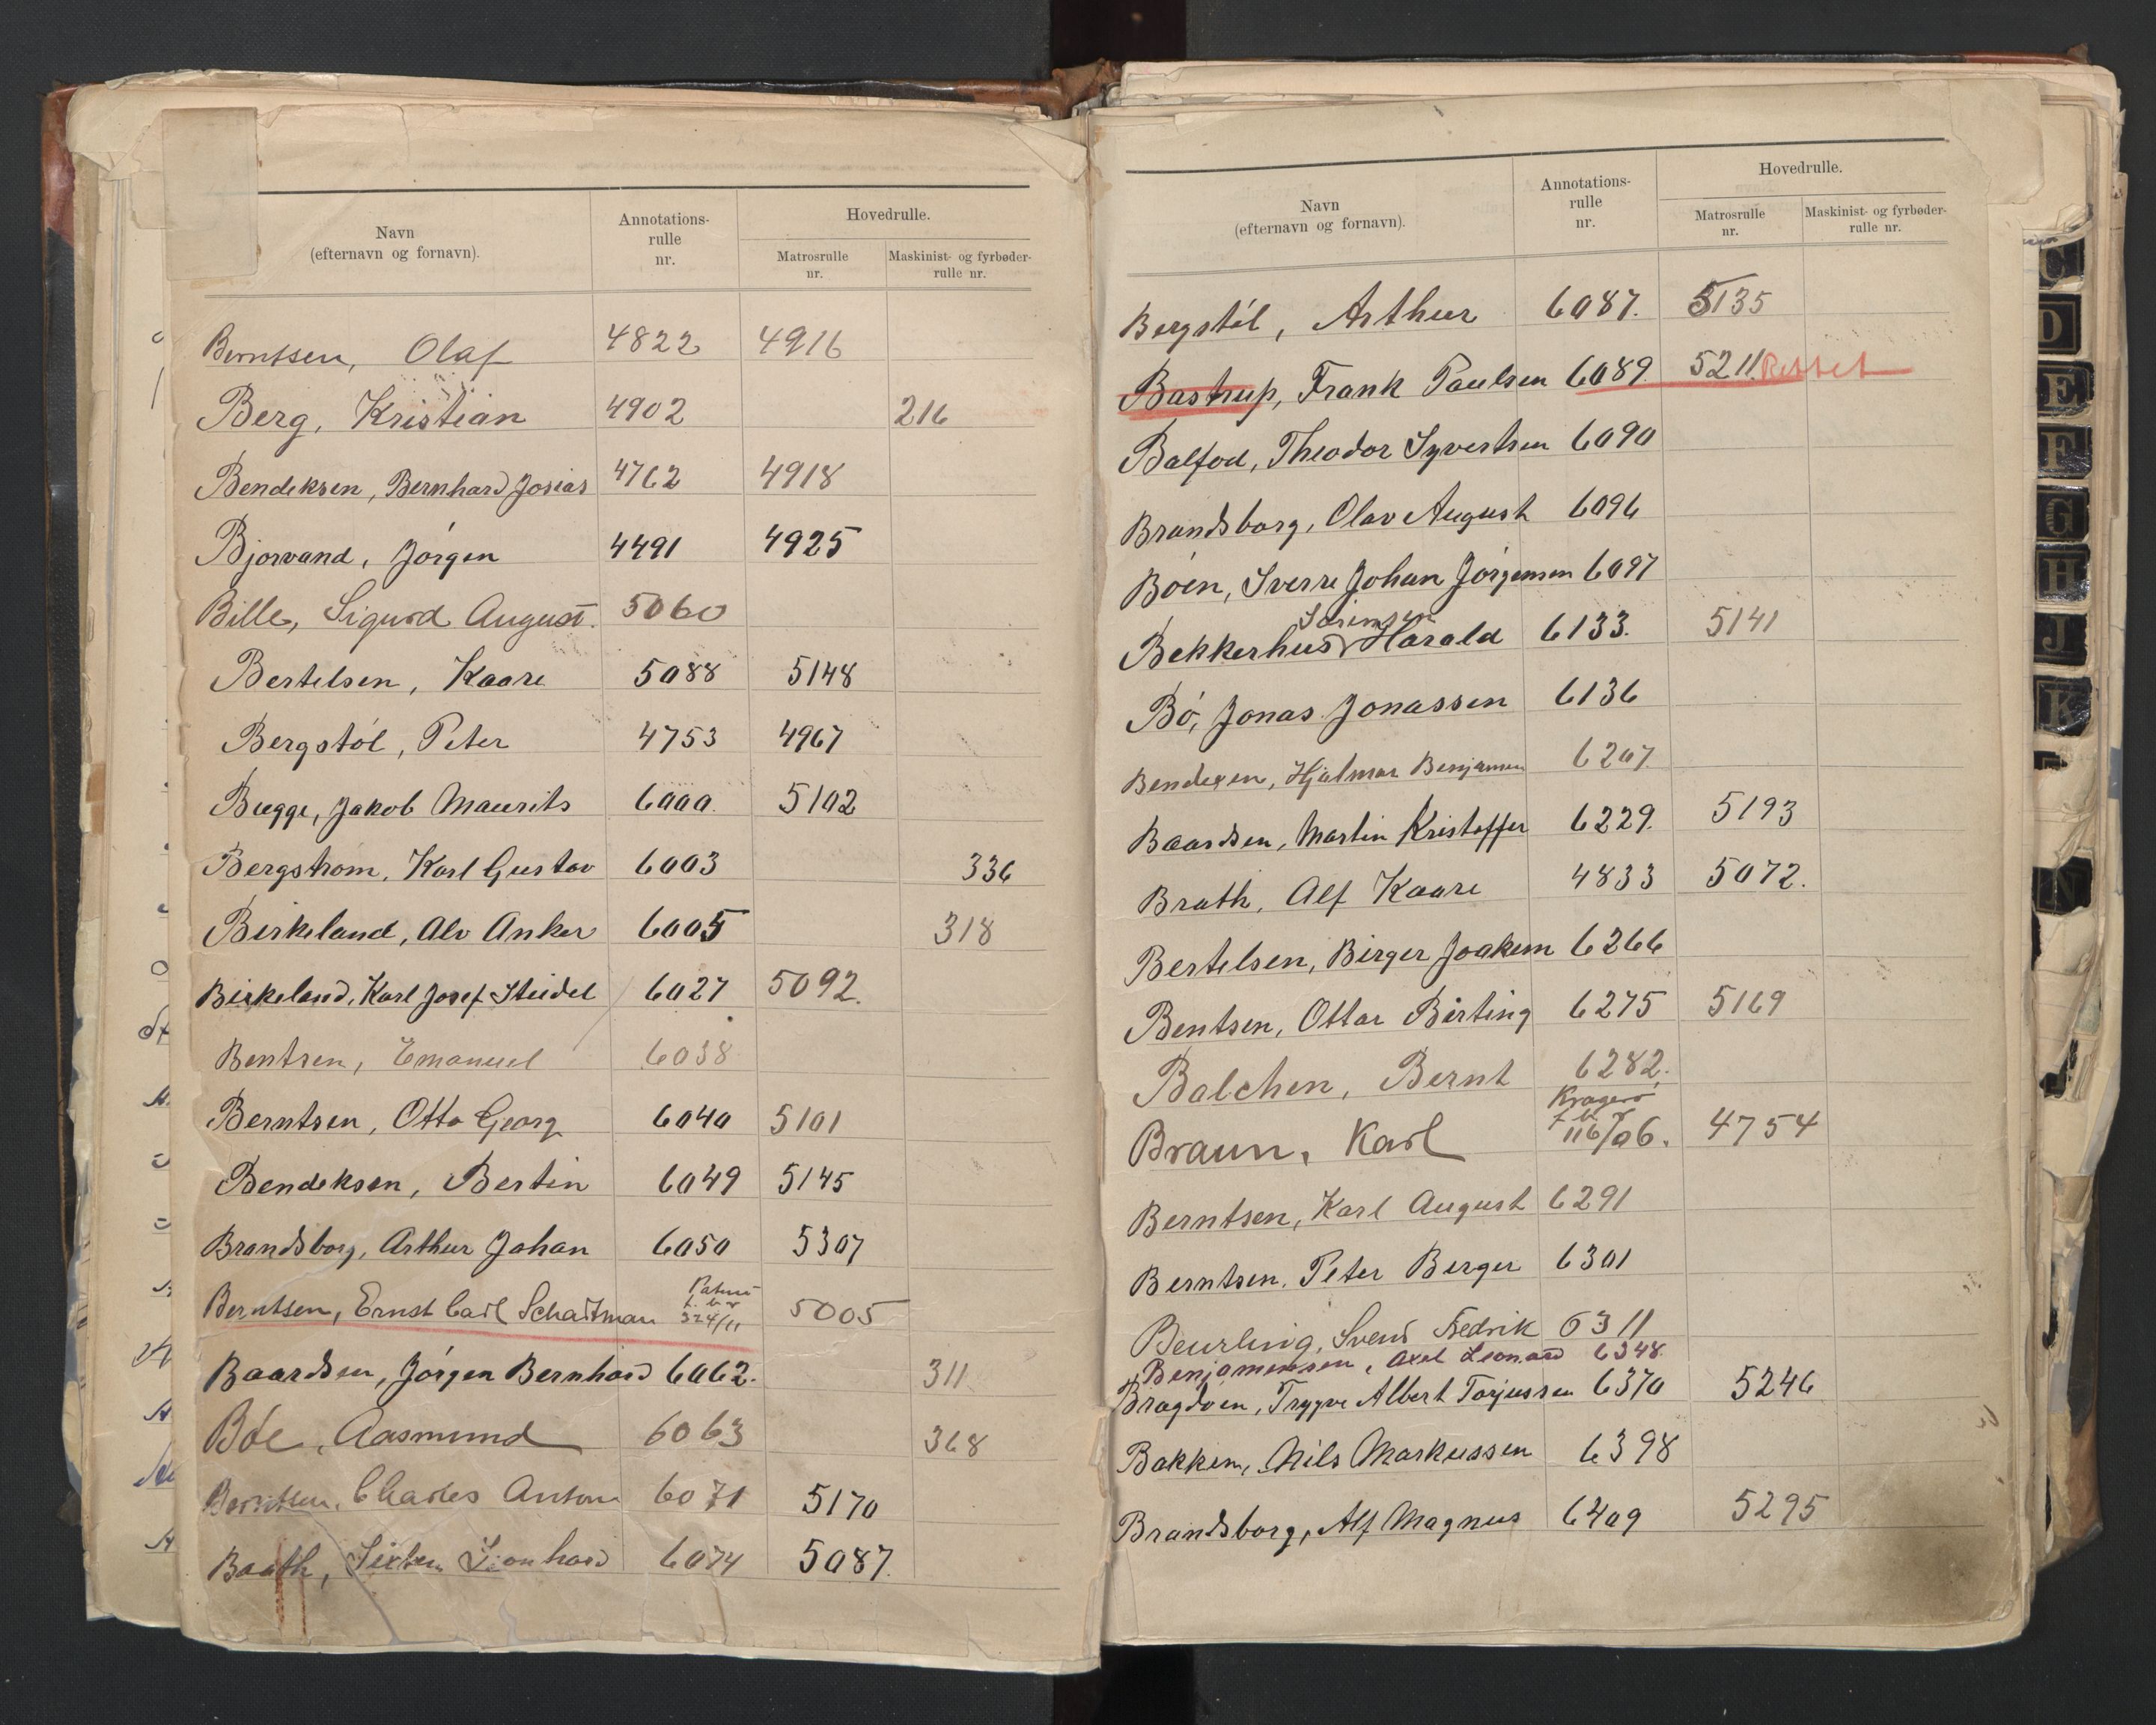 Navn
(efternavn og fornavn).
Annotations-
rulle
nr.
Hovedrulle.
Matrosrulle
nr.
Maskinist- og fyrbøder-
rulle nr.
Berntsen, Olaf 4822 4916
Berg, Kristian 4902 216
Bendeksen, Bernhard Josias 4762 4918
Bjorvand, Jørgen 4491 4925
Bille, Sigurd August. 5060
Bertelsen, Kaare 5088 5148
Bergstøl, Peter 4753 4967
Bugge, Jakob Maurits 6000. 5102
Bergstrom, Karl Gustav 6003 336
Birkeland, Alv Anker 6005 318
Birkeland, Karl Josef Steidel 6027 5092.
Bentsen, Emanuel 6038
Berntsen, Otto Georg 6040 5101
Bendeksen, Bertin 6049 5145
Brandsborg, Arthur Johan 6050 5307
Berntsen, Ernst Carl 324/11 5005
Baardsen, Jørgen Bernhard 6062. 311
Bøe, Aasmund 6063 368
Berntsen, Charles Anton 6071 5170
Baath, Sixten Leonhard 6074 5087.
Navn
(efternavn og fornavn).
Annotations-
rulle
nr.
Hovedrulle.
Matrosrulle
nr.
Maskinist- og fyrbøder-
rulle nr.
Bergstøl, Arthur 6087. 5135
Bastrup, Frank Paulsen 6089. 5211.
Balfod, Theodor Syvertsen 6090
Brandsborg, Olav August 6096
Bøen, Sverre Johan Jørgensen 6097
Sørensen
Bekkerhus Harald 6133. 5141
Bø, Jonas Jonassen 6136
Bendexen, Hjalmar Benjamin 6207.
Baardsen, Martin Kristoffer 6229. 5193
Brath, Alf Kaare 4833 5072.
Bertelsen, Birger Joakim 6266
Bentsen, Ottar Birting 6275 5169
Balchen, Bernt 6282.
Kragerø
Braun, Karl 116/06. 4754
Berntsen, Karl August 6291
Berntsen, Peter Berger 6301
Beurling, Svend Fredrik 6311
Benjaminsen, Axel Leonard 6348.
Bragdøen, Trygve Albert Torjussen 6370 5246
Bakken, Nils Markussen 6398
Brandsborg, Alf Magnus 6409 5295
C
D
E
F
G
H
J
K
N